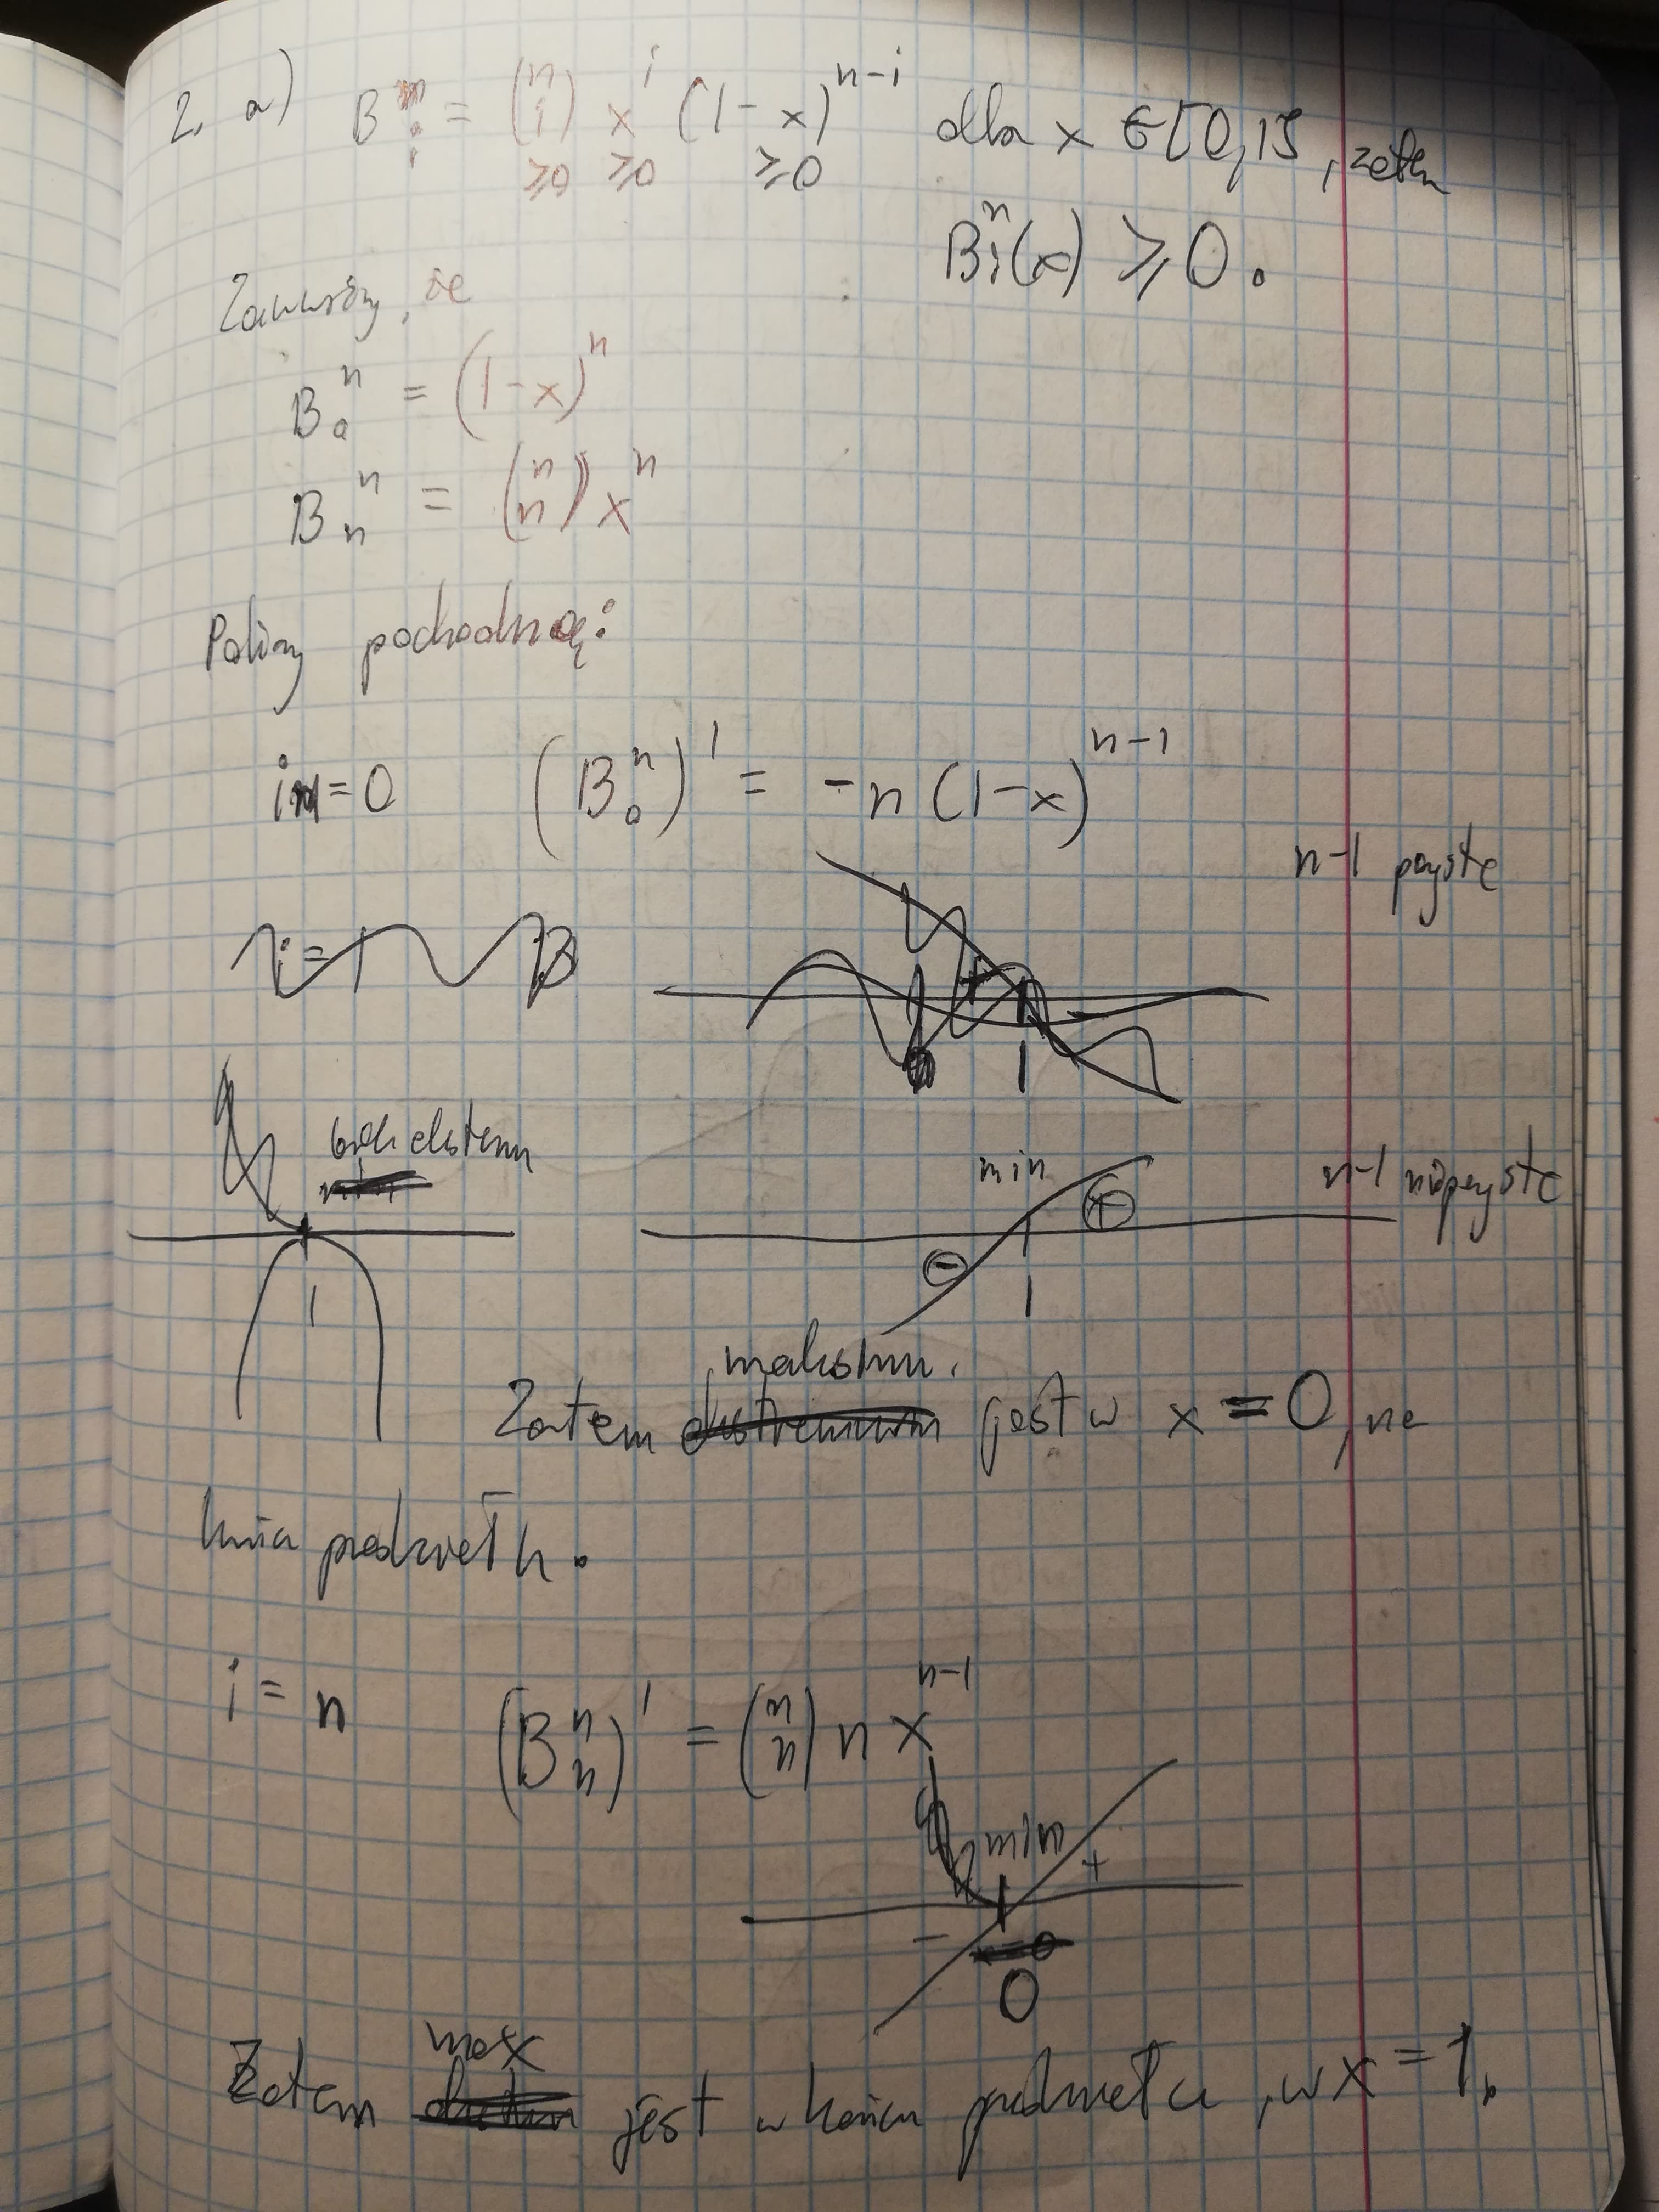 2. a) B_i^n = (n i) x^i (1-x)^{n-i} dla x ∈ [0,1], zatem
≥0 ≥0 ≥0
B_i^n(x) ≥ 0.
Zauważmy, że
B_0^n = (1-x)^n
B_n^n = (n n) x^n
Policzmy pochodną:
i = 0 (B_0^n)' = -n (1-x)^{n-1}
n-1 parzyste
i = 1 B
1
brak ekstremum
min
n-1 nieparzyste
+
-
1
1
maksimum.
Zatem jest w x = 0, na
końcu przedziału.
i = n (B_n^n)' = (n n) n x^{n-1}
min
+
-
0
max
Zatem jest w końcu przedziału, w x = 1.